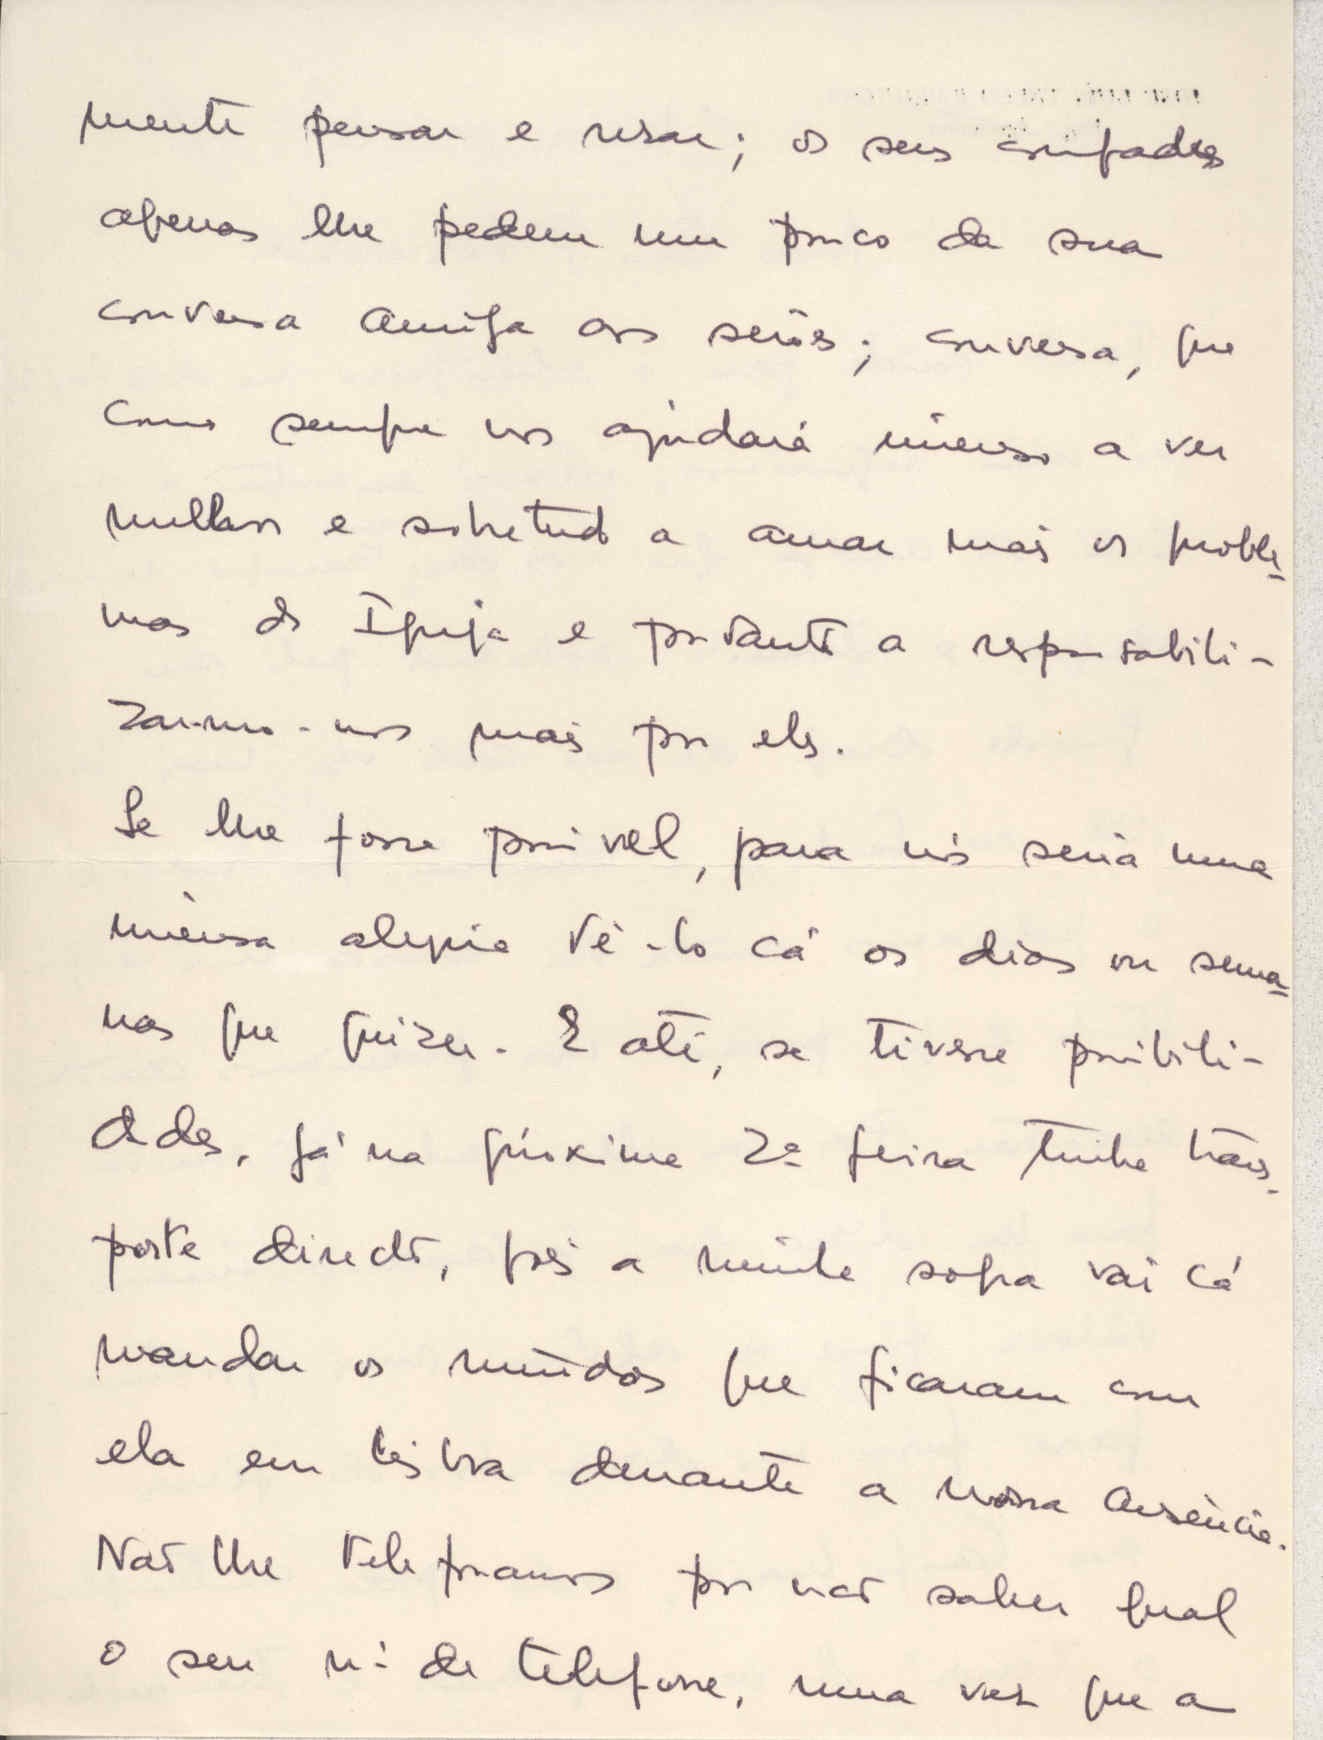 mente pensar e rezar; os seus compadres
apenas lhe pedem um pouco da sua
conversa amiga aos serões; conversa, que
como sempre nos ajudará imenso a ver
melhor e sobretudo a amar mais os proble-
mas da Igreja e portanto a responsabili-
zarmo-nos mais por eles.
Se lhe fosse possivel, para nós seria uma
imensa alegria vê-lo cá os dias ou sema-
nas que quizer. E até, se tivesse possibili-
dades, já na próxima 2ª feira tinha trans-
porte directo, pois a minha sogra vai cá
mandar os miudos que ficaram com
ela em Lisboa durante a nossa ausência.
Não lhe telefonamos por não saber qual
o seu nº de telefone, uma vez que a